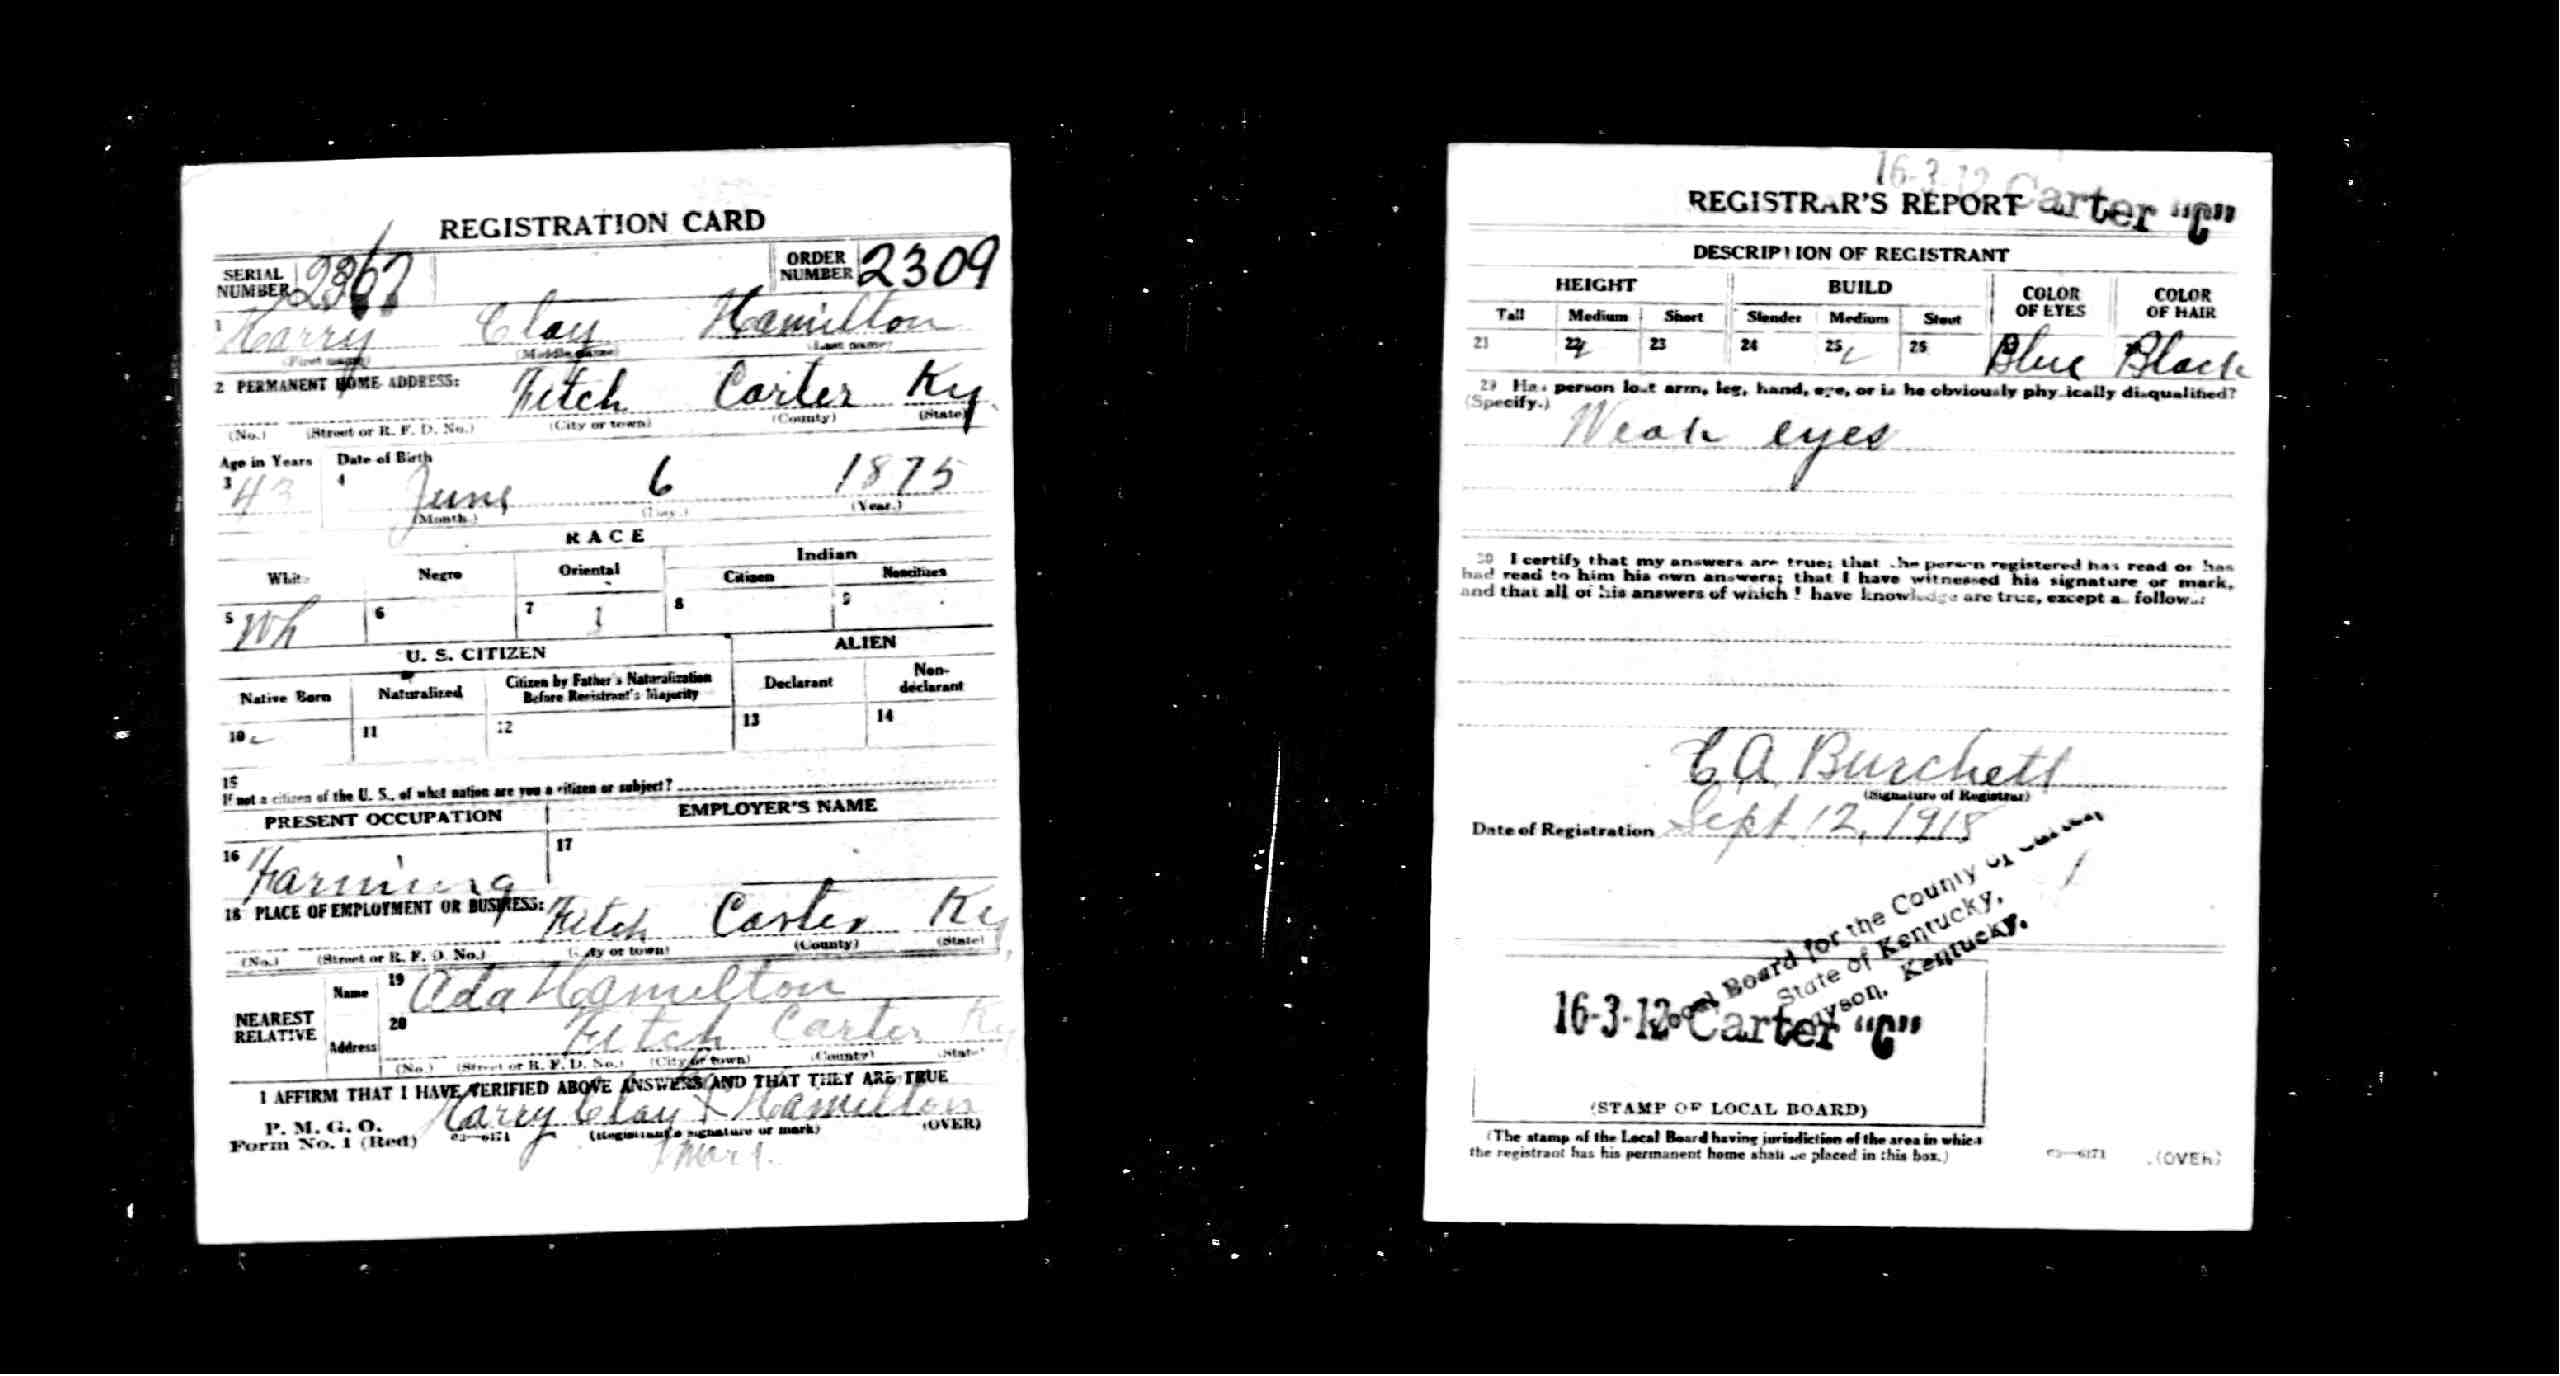 REGISTRATION CARD
SERIAL NUMBER
ORDER NUMBER 2309
1 Harry Clay Hamilton
(First name) (Middle name) (Last name)
2 PERMANENT HOME ADDRESS:
Fitch Carter Ky.
(No.) (Street or R. F. D. No.) (City or town) (County) (State)
Age in Years Date of Birth
3 43 4 June 6 1875
(Month.) (Day.) (Year.)
RACE
White Negro Oriental Indian
Citizen Noncitizen
5 Wh 6 7 8 9
U. S. CITIZEN ALIEN
Native Born Naturalized Citizen by Father's Naturalization Before Registrant's Majority Declarant Non-declarant
10 11 12 13 14
15
If not a citizen of the U. S., of what nation are you a citizen or subject?
PRESENT OCCUPATION EMPLOYER'S NAME
16 Farming 17
18 PLACE OF EMPLOYMENT OR BUSINESS:
Fitch Carter Ky
(No.) (Street or R. F. D. No.) (City or town) (County) (State)
NEAREST RELATIVE
Name 19 Ada Hamilton
Address 20 Fitch Carter Ky
(No.) (Street or R. F. D. No.) (City or town) (County) (State)
I AFFIRM THAT I HAVE VERIFIED ABOVE ANSWERS AND THAT THEY ARE TRUE
P. M. G. O.
Form No. 1 (Red) 03—6171 Harry Clay X Hamilton
(Registrant's signature or mark) (OVER)
mark
16-3-12 Carter "C"
REGISTRAR'S REPORT
DESCRIPTION OF REGISTRANT
HEIGHT BUILD COLOR OF EYES COLOR OF HAIR
Tall Medium Short Slender Medium Stout
21 22 23 24 25 26 Blue Black
29 Has person lost arm, leg, hand, eye, or is he obviously physically disqualified?
(Specify.)
Weak eyes
30 I certify that my answers are true; that the person registered has read or has
had read to him his own answers; that I have witnessed his signature or mark,
and that all of his answers of which I have knowledge are true, except as follows:
E A Burchett
(Signature of Registrar)
Date of Registration Sept 12, 1918
Local Board for the County of Carter,
State of Kentucky,
Grayson, Kentucky.
16-3-12 Carter "C"
(STAMP OF LOCAL BOARD)
(The stamp of the Local Board having jurisdiction of the area in which
the registrant has his permanent home shall be placed in this box.)
03—6171 (OVER)